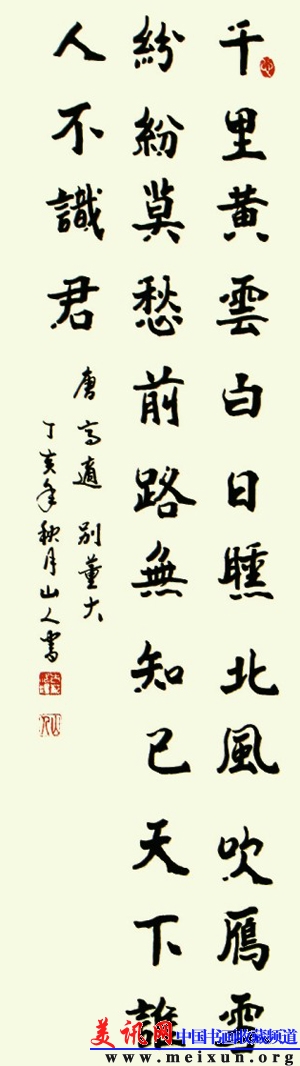 千里黄雲白日曛北風吹鴈雪
紛紛莫愁前路無知己天下誰
人不識君
唐高適 别董大
丁亥年秋月山人書
美讯网 中国书画收藏频道
www.meixun.org.